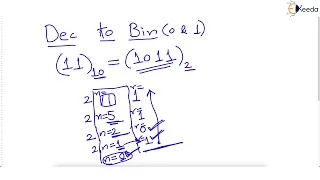 Ekeeda
Dec to Bin (0 & 1)
(11)₁₀ = (1011)₂
2 n=11 r=1
2 n=5 r=1
2 n=2 r=0
2 n=1 r=1
n=0